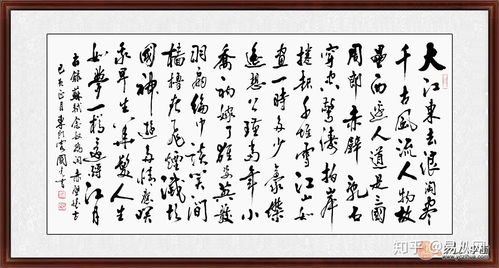 大江東去浪淘尽
千古風流人物故
壘西邊人道是三國
周郎赤壁乱石
穿空驚濤拍岸
捲起千堆雪江山如
畫一時多少豪傑
遙想公瑾當年小
喬初嫁了雄姿英發
羽扇綸巾談笑間
檣櫓灰飛煙滅故
國神遊多情應笑
我早生華髮人生
如夢一樽還酹江月
右錄蘇軾念奴嬌詞赤壁懷古
己亥正月
知乎 @易从网